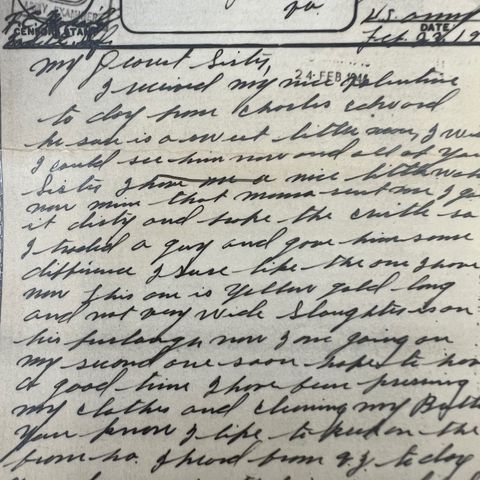 BY EXAMINER
CENSOR'S STAMP
Ga.
U.S. Army
DATE
Feb 23, 19
24 FEB 194
My Dearest Sister,
I received my nice Valentine
to day from Charles Edward
he sure is a sweet little man, I wish
I could see him now and all of You
Sister I have me a nice little wat
now mine that mama sent me I g
it dirty and broke the so
I traded a guy and gave him some
diffirence I sure like the one I have
now this one is Yellow gold long
and not very wide Slaughter is on
his furlough now I am going on
my second one soon hope to hav
a good time I have been pressing
my clothes and cleaning my Butt
You know I like to keep on the
I heard from to day